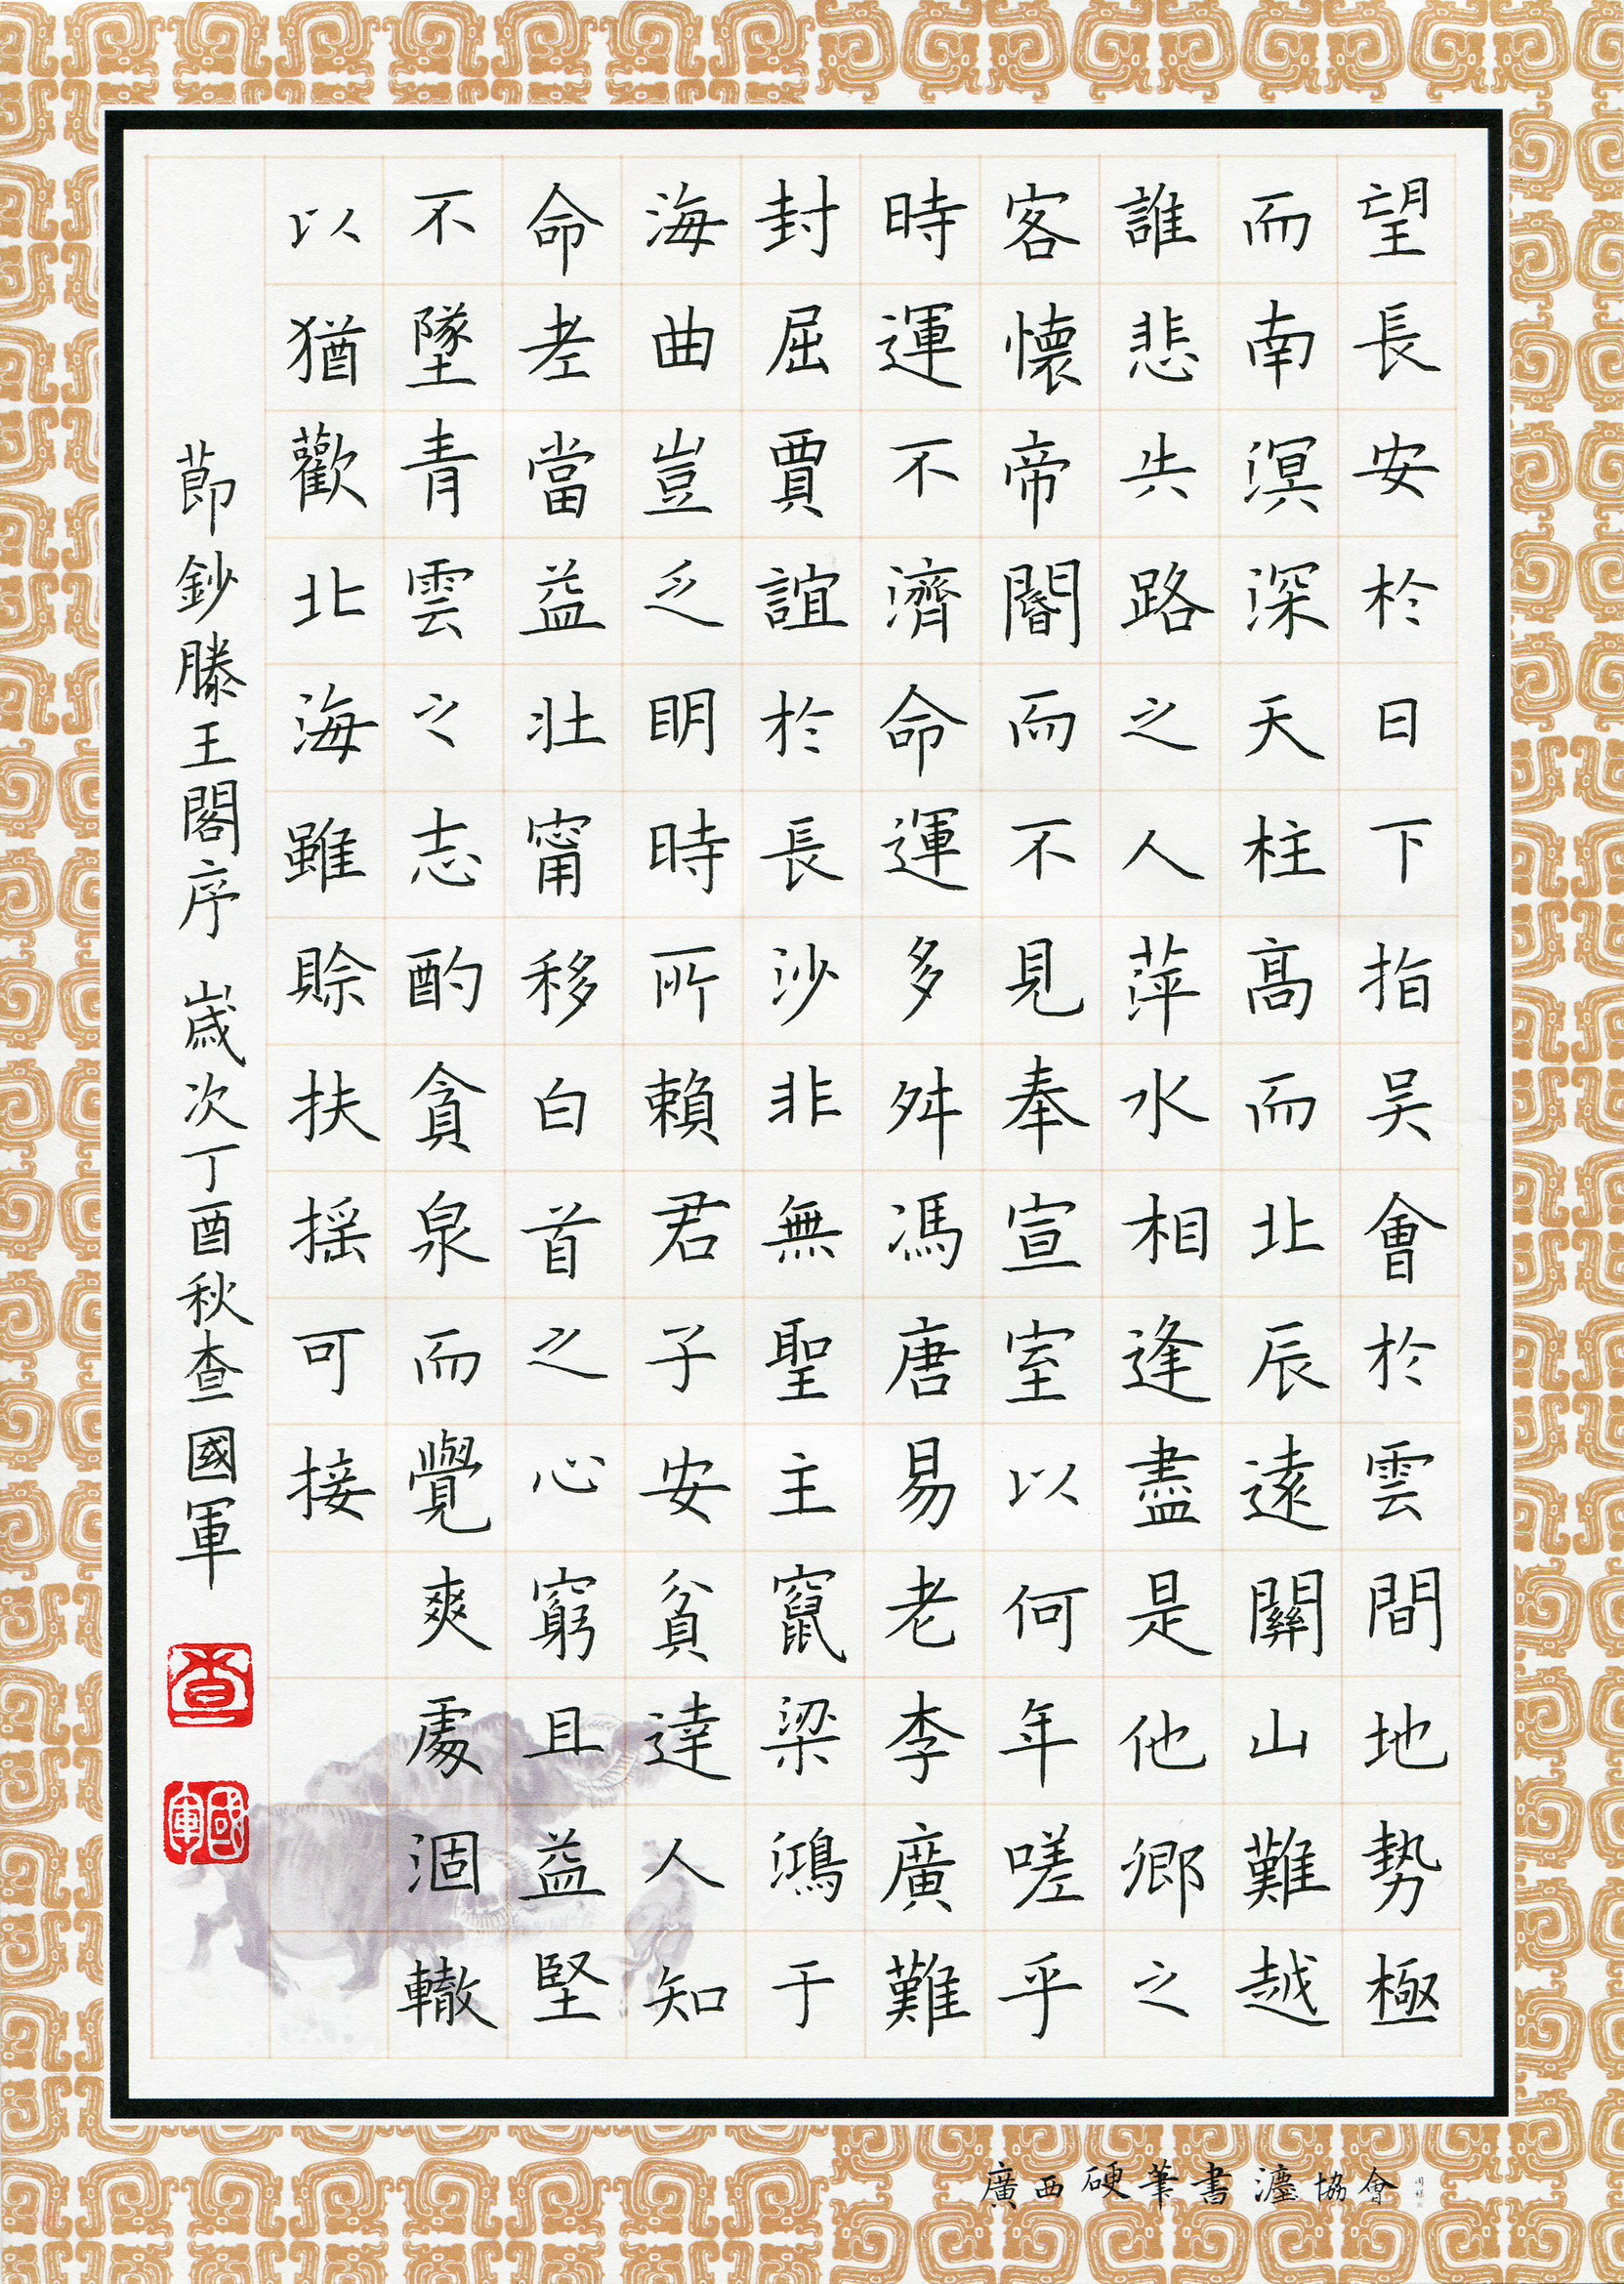 望長安於日下指吴會於雲間地勢極
而南溟深天柱高而北辰遠關山難越
誰悲失路之人萍水相逢盡是他鄉之
客懷帝閽而不見奉宣室以何年嗟乎
時運不濟命運多舛馮唐易老李廣難
封屈賈誼於長沙非無聖主竄梁鴻于
海曲豈乏明時所賴君子安貧達人知
命老當益壯甯移白首之心窮且益堅
不墜青雲之志酌貪泉而覺爽處涸轍
以猶歡北海雖賒扶摇可接
節鈔滕王閣序 歲次丁酉秋查國軍
查
國軍
廣西硬筆書灋協會